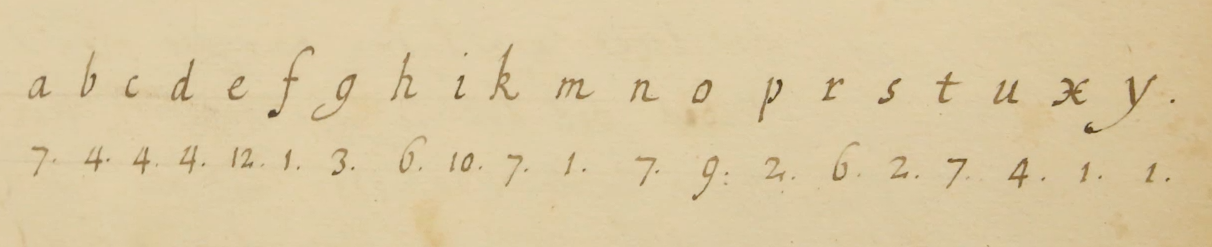 a b c d e f g h i k m n o p r s t u x y.
7. 4. 4. 4. 12. 1. 3. 6. 10. 7. 1. 7. 9: 2. 6. 2. 7. 4. 1. 1.